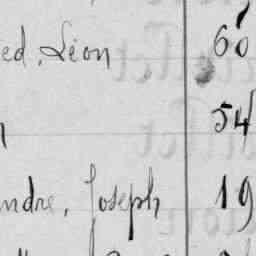 ed, Léon 60
54
ndre, Joseph 19